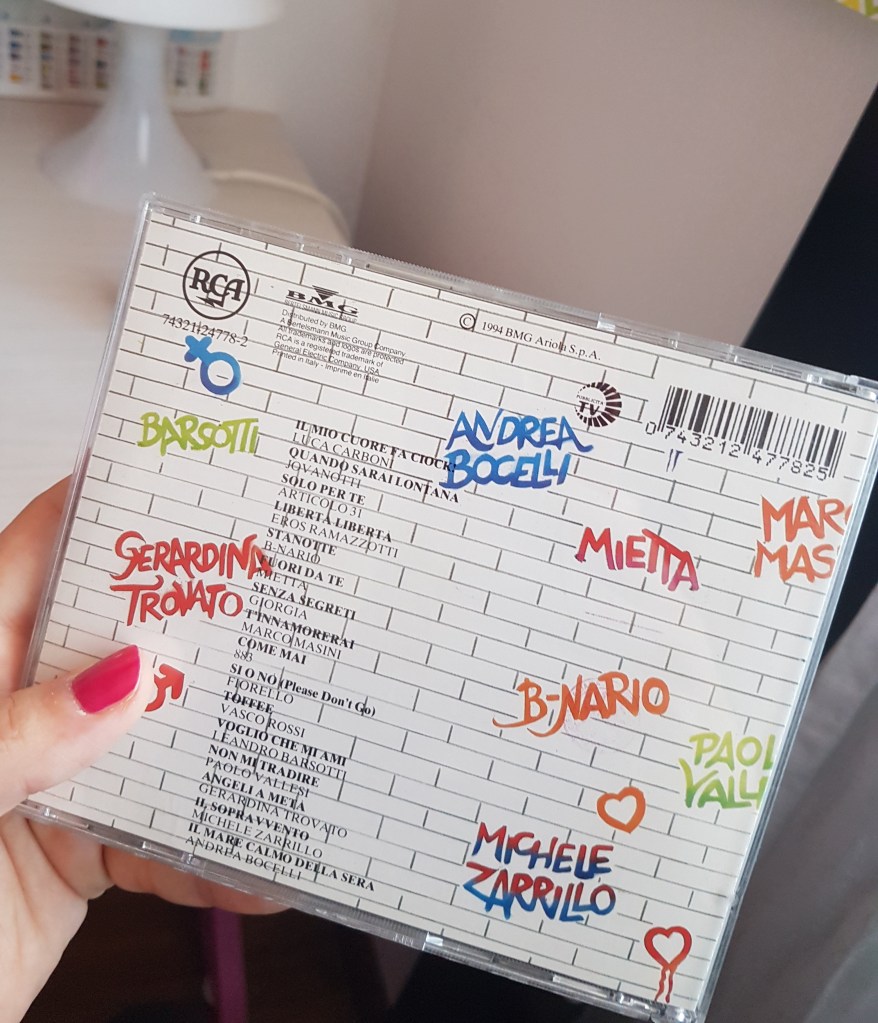 RCA
74321-24778-2
BMG
BERTELSMANN MUSIC GROUP
Distributed by BMG
A Bertelsmann Music Group Company
All trademarks and logos are protected
RCA is a registered trademark of
General Electric Company, USA
Printed in Italy - Imprimé en Italie
© 1994 BMG Ariola S.p.A.
PUBBLICITÀ
TV
0 743212 477825
BARSOTTI
ANDREA
BOCELLI
IL MIO CUORE FA CIOCK!
LUCA CARBONI
QUANDO SARAI LONTANA
JOVANOTTI
SOLO PER TE
ARTICOLO 31
LIBERTÀ LIBERTÀ
EROS RAMAZZOTTI
STANOTTE
B-NARIO
FUORI DA TE
MIETTA
SENZA SEGRETI
GIORGIA
T'INNAMORERAI
MARCO MASINI
COME MAI
883
SI O NO (Please Don't Go)
FIORELLO
TOFFEE
VASCO ROSSI
VOGLIO CHE MI AMI
LEANDRO BARSOTTI
NON MI TRADIRE
PAOLO VALLESI
ANGELI A METÀ
GERARDINA TROVATO
IL SOPRAVVENTO
MICHELE ZARRILLO
IL MARE CALMO DELLA SERA
ANDREA BOCELLI
MIETTA
MAR
MAS
GERARDINA
TROVATO
B-NARIO
PAOL
VALL
MICHELE
ZARRILLO